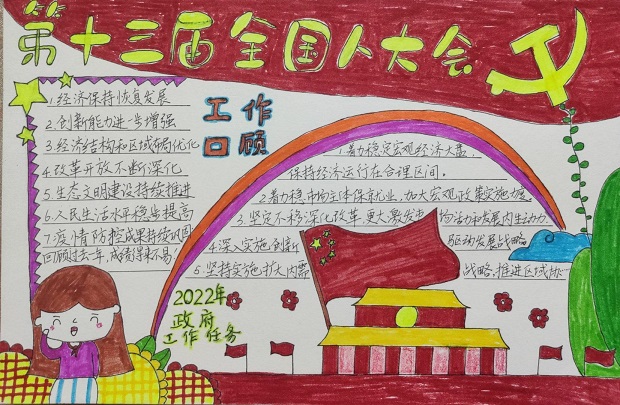 第十三届全国人大会
工作
回顾
1.经济保持恢复发展
2.创新能力进一步增强
3.经济结构和区域布局优化
4.改革开放不断深化
5.生态文明建设持续推进
6.人民生活水平稳步提高
7.疫情防控成果持续巩固
回顾过去一年,成绩得来不易
1.着力稳定宏观经济大盘,
保持经济运行在合理区间。
2.着力稳市场主体保就业,加大宏观政策实施力度
3.坚定不移深化改革,更大激发市场活力和发展内生动力
4.深入实施创新驱动发展战略
5.坚持实施扩大内需战略,推进区域协
2022年
政府
工作任务